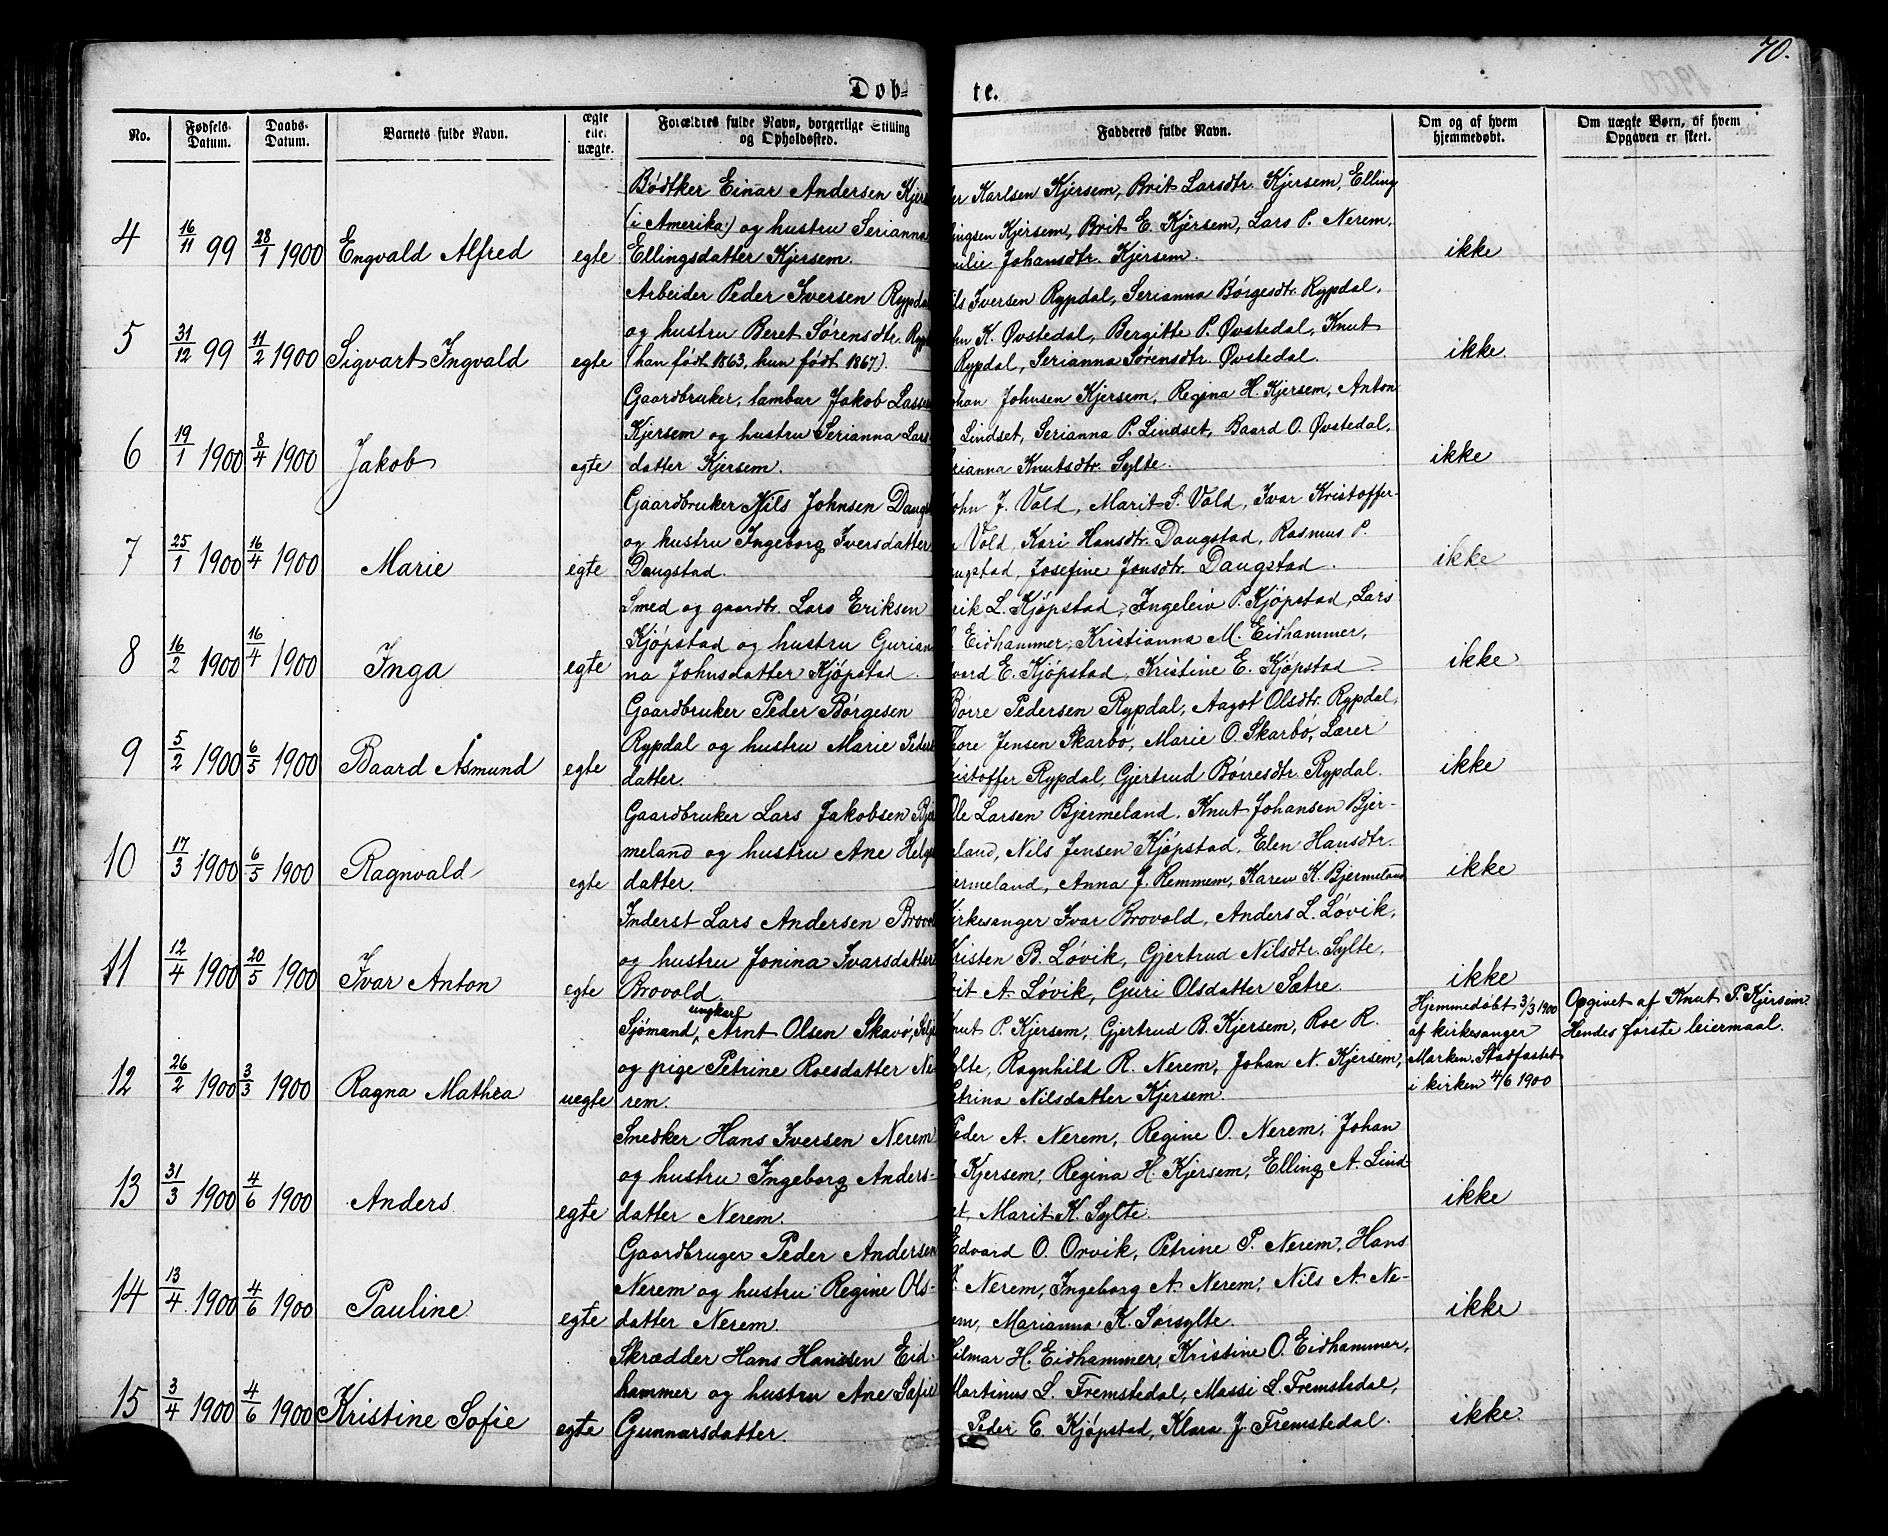 70.
Døbte.
No. Fødsels-Datum. Daabs-Datum. Barnets fulde Navn. ægte ell. uægte. Forældres fulde Navn, borgerlige Stilling og Opholdssted. Fadderes fulde Navn. Om og af hvem hjemmedøbt. Om uægte Børn, af hvem Opgaven er skeet.
Bødtker Einar Andersen Kjers Karlsen Kjersem, Brit Larsdtr. Kjersem, Elling
(i Amerika) og hustru Serianna ingsen Kjersem, Brit E. Kjersem, Lars P. Nerem,
4 16/11 99 28/1 1900 Engvald Alfred egte Ellingsdatter Kjersem. milie Johansdtr. Kjersem. ikke
Arbeider Peder Iversen Rypdal ils Iversen Rypdal, Serianna Børgesdtr. Rypdal,
og hustru Beret Sørensdtr. Ryp hn K. Øvstedal, Bergitte P. Øvstedal, Knut
5 31/12 99 11/2 1900 Sigvart Ingvald egte (han født 1863, hun født 1867). Rypdal, Serianna Sørensdtr. Øvstedal. ikke
Gaardbruker, Jakob Lassen ohan Johnsen Kjersem, Regina H. Kjersem, Anton
Kjersem og hustru Serianna Lars- Lindset, Serianna P. Lindset, Baard O. Øvstedal,
6 19/1 1900 8/4 1900 Jakob egte datter Kjersem. rianna Knutsdtr. Sylte. ikke
Gaardbruker Nils Johnsen Daugs ohn J. Vold, Marit S. Vold, Ivar Kristoffer-
og hustru Ingeborg Iversdatter Vold, Kari Hansdtr. Daugstad, Rasmus P.
7 25/1 1900 16/4 1900 Marie egte Daugstad. ugstad, Josefine Jonsdtr. Daugstad. ikke
Smed og gaardbr. Lars Eriksen rik L. Kjøpstad, Ingeleiv P. Kjøpstad, Lars
Kjøpstad og hustru Gurian- Eidhammer, Kristianna M. Eidhammer,
8 16/2 1900 16/4 1900 Inga egte na Johnsdatter Kjøpstad. vard E. Kjøpstad, Kristine E. Kjøpstad ikke
Gaardbruker Peder Børgesen Børre Pedersen Rypdal, Aagot Olsdtr. Rypdal,
Rypdal og hustru Marie Peders Thore Jensen Skarbø, Marie O. Skarbø, Lærer
9 5/2 1900 6/5 1900 Baard Åsmund egte datter. ristoffer Rypdal, Gjertrud Børresdtr. Rypdal. ikke
Gaardbruker Lars Jakobsen Bjer Ole Larsen Bjermeland, Knut Johansen Bjer-
meland og hustru Ane Helge eland, Nils Jensen Kjøpstad, Elen Hansdtr.
10 17/3 1900 6/5 1900 Ragnvald egte datter. jermeland, Anna J. Remmem, Karen K. Bjermeland ikke
Inderst Lars Andersen Brovol Kirkesanger Ivar Brovold, Anders L. Løvik,
og hustru Jonina Ivarsdatter Kristen B. Løvik, Gjertrud Nilsdtr. Sylte,
11 12/4 1900 20/5 1900 Ivar Anton egte Brovold. rit A. Løvik, Guri Olsdatter Sætre ikke
Sjømand, ungkarl Arnt Olsen Skavø, nut P. Kjersem, Gjertrud B. Kjersem, Roe R. Hjemmedøbt 3/3 1900 Opgivet af Knut P. Kjersem.
af kirkesanger Hendes første leiermaal.
og pige Petrine Roesdatter Ne- ylte, Ragnhild R. Nerem, Johan N. Kjersem, Marken. Stadfæstet
12 26/2 1900 3/3 1900 Ragna Mathea uegte rem. etrina Nilsdatter Kjersem. i kirken 4/6 1900
Snedker Hans Iversen Nerem Peder A. Nerem, Regine O. Nerem, Johan
og hustru Ingeborg Anders- Kjersem, Regina H. Kjersem, Elling A. Lind
13 31/3 1900 4/6 1900 Anders egte datter Nerem. et, Marit K. Sylte. ikke
Gaardbruger Peder Andersen Edvard O. Orvik, Petrine P. Nerem, Hans
Nerem og hustru Regine Ols- Nerem, Ingeborg A. Nerem, Nils A. Ne-
14 13/4 1900 4/6 1900 Pauline egte datter Nerem. em, Marianna K. Sørsylte. ikke
Skrædder Hans Hanssen Eid- Hilmar H. Eidhammer, Kristine O. Eidhammer,
hammer og hustru Ane Sofie Martinus L. Fremstedal, Massi L. Fremstedal,
15 3/4 1900 4/6 1900 Kristine Sofie egte Gunnarsdatter. Peder E. Kjøpstad, Klara J. Fremstedal. ikke.